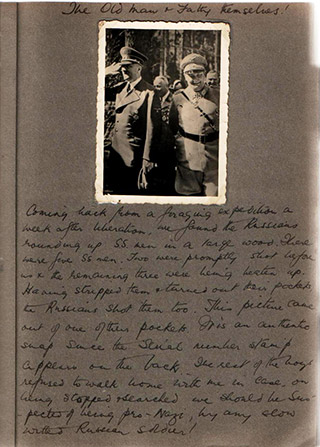 The Old Man & Fatty themselves!
Coming back from a foraging expedition a
week after liberation, we found the Russians
rounding up SS men in a large wood. There
were five SS men. Two were promptly shot before
us & the remaining three were being beaten up.
Having stripped them & turned out their pockets
the Russians shot them too. This picture came
out of one of their pockets. It is an authentic
snap since the serial number stamp
appears on the back. The rest of the boys
refused to walk home with me in case, on
being stopped & searched we should be sus-
pected of being pro-Nazi, by any slow
witted Russian soldier!